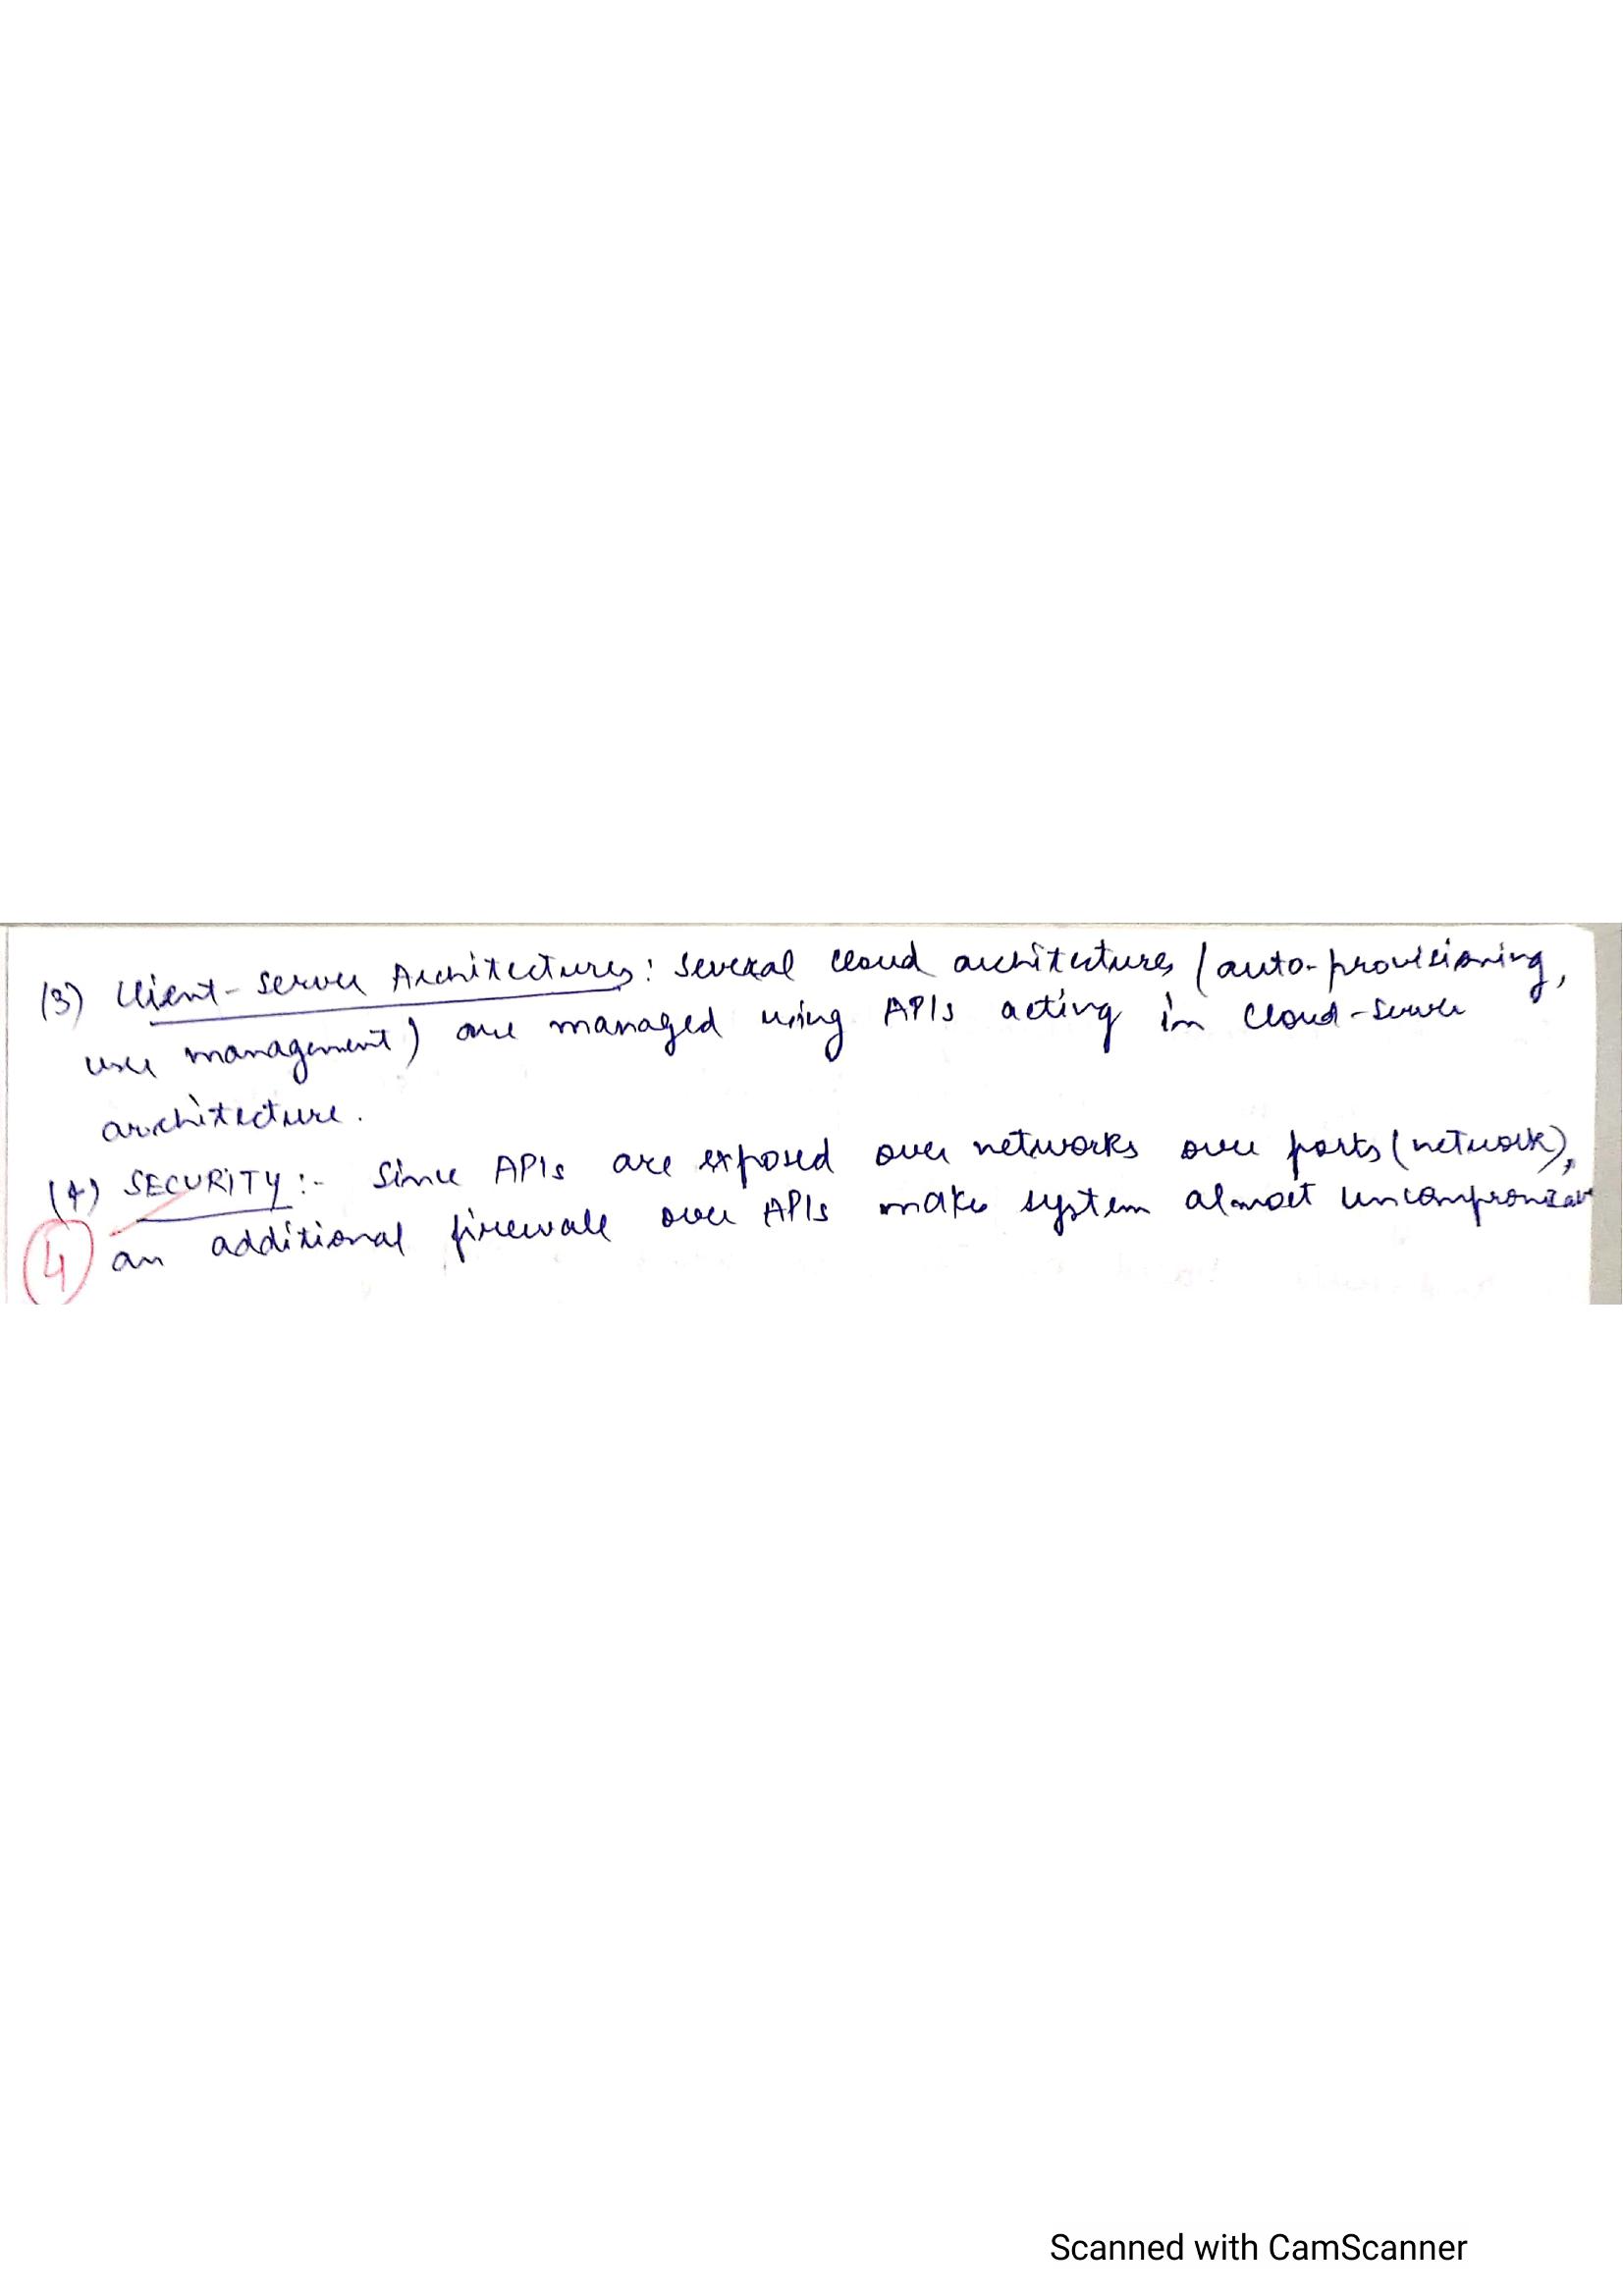 (3) Client-Server Architectures: Several cloud architectures (auto-provisioning,
user management) are managed using APIs acting in Cloud-server
architecture.
(4) SECURITY :- Since APIs are exposed over networks over ports (network),
an additional firewall over APIs make system almost uncompromizable
4
Scanned with CamScanner